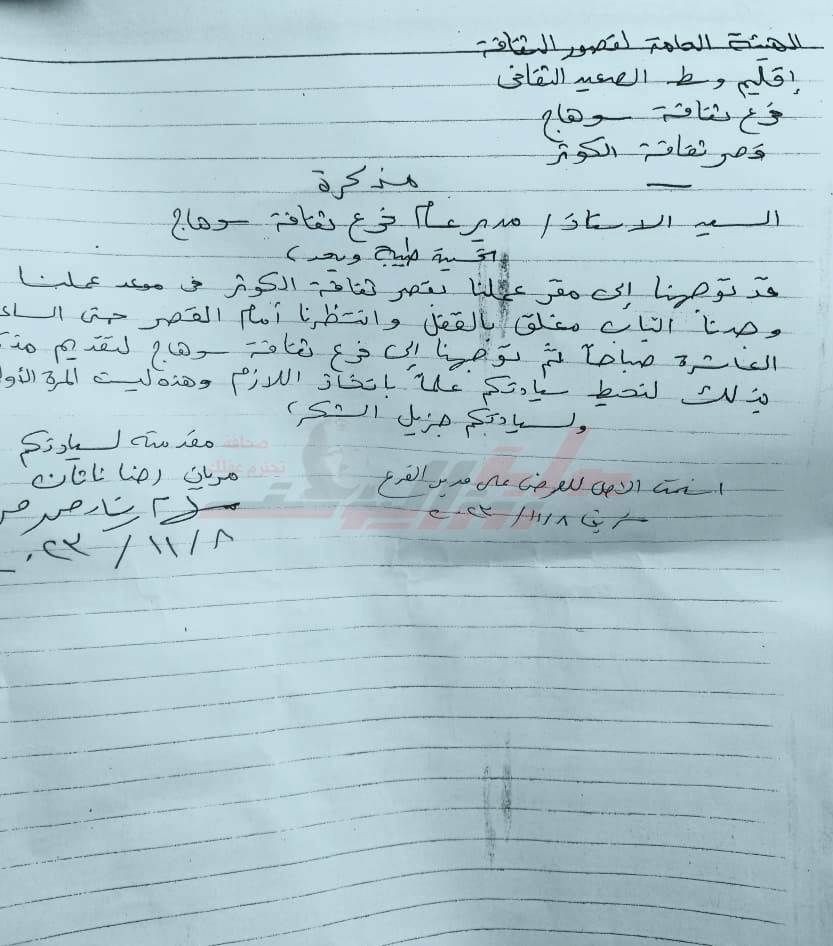 الهيئة العامة لقصور الثقافة
إقليم وسط الصعيد الثقافى
فرع ثقافة سوهاج
قصر ثقافة الكوثر
مذكرة
السيد الاستاذ / مدير عام فرع ثقافة سوهاج
تحية طيبة وبعد ،
قد توجهنا إلى مقر عملنا بقصر ثقافة الكوثر فى موعد عملنا
وجدنا الباب مغلق بالقفل وانتظرنا أمام القصر حتى الساع
العاشرة صباحاً ثم توجهنا إلى فرع ثقافة سوهاج لتقديم مذك
بذلك لنحيط سيادتكم علماً باتخاذ اللازم وهذه ليست المرة الأول
ولسيادتكم جزيل الشكر ،
مقدمته لسيادتكم
مريان رضا ناثان
٢٠٢٣/١١/٨
استلمت الاصل للعرض على مدير الفرع
٢٠٢٣/١١/٨
صحافة
تحترم عقلك